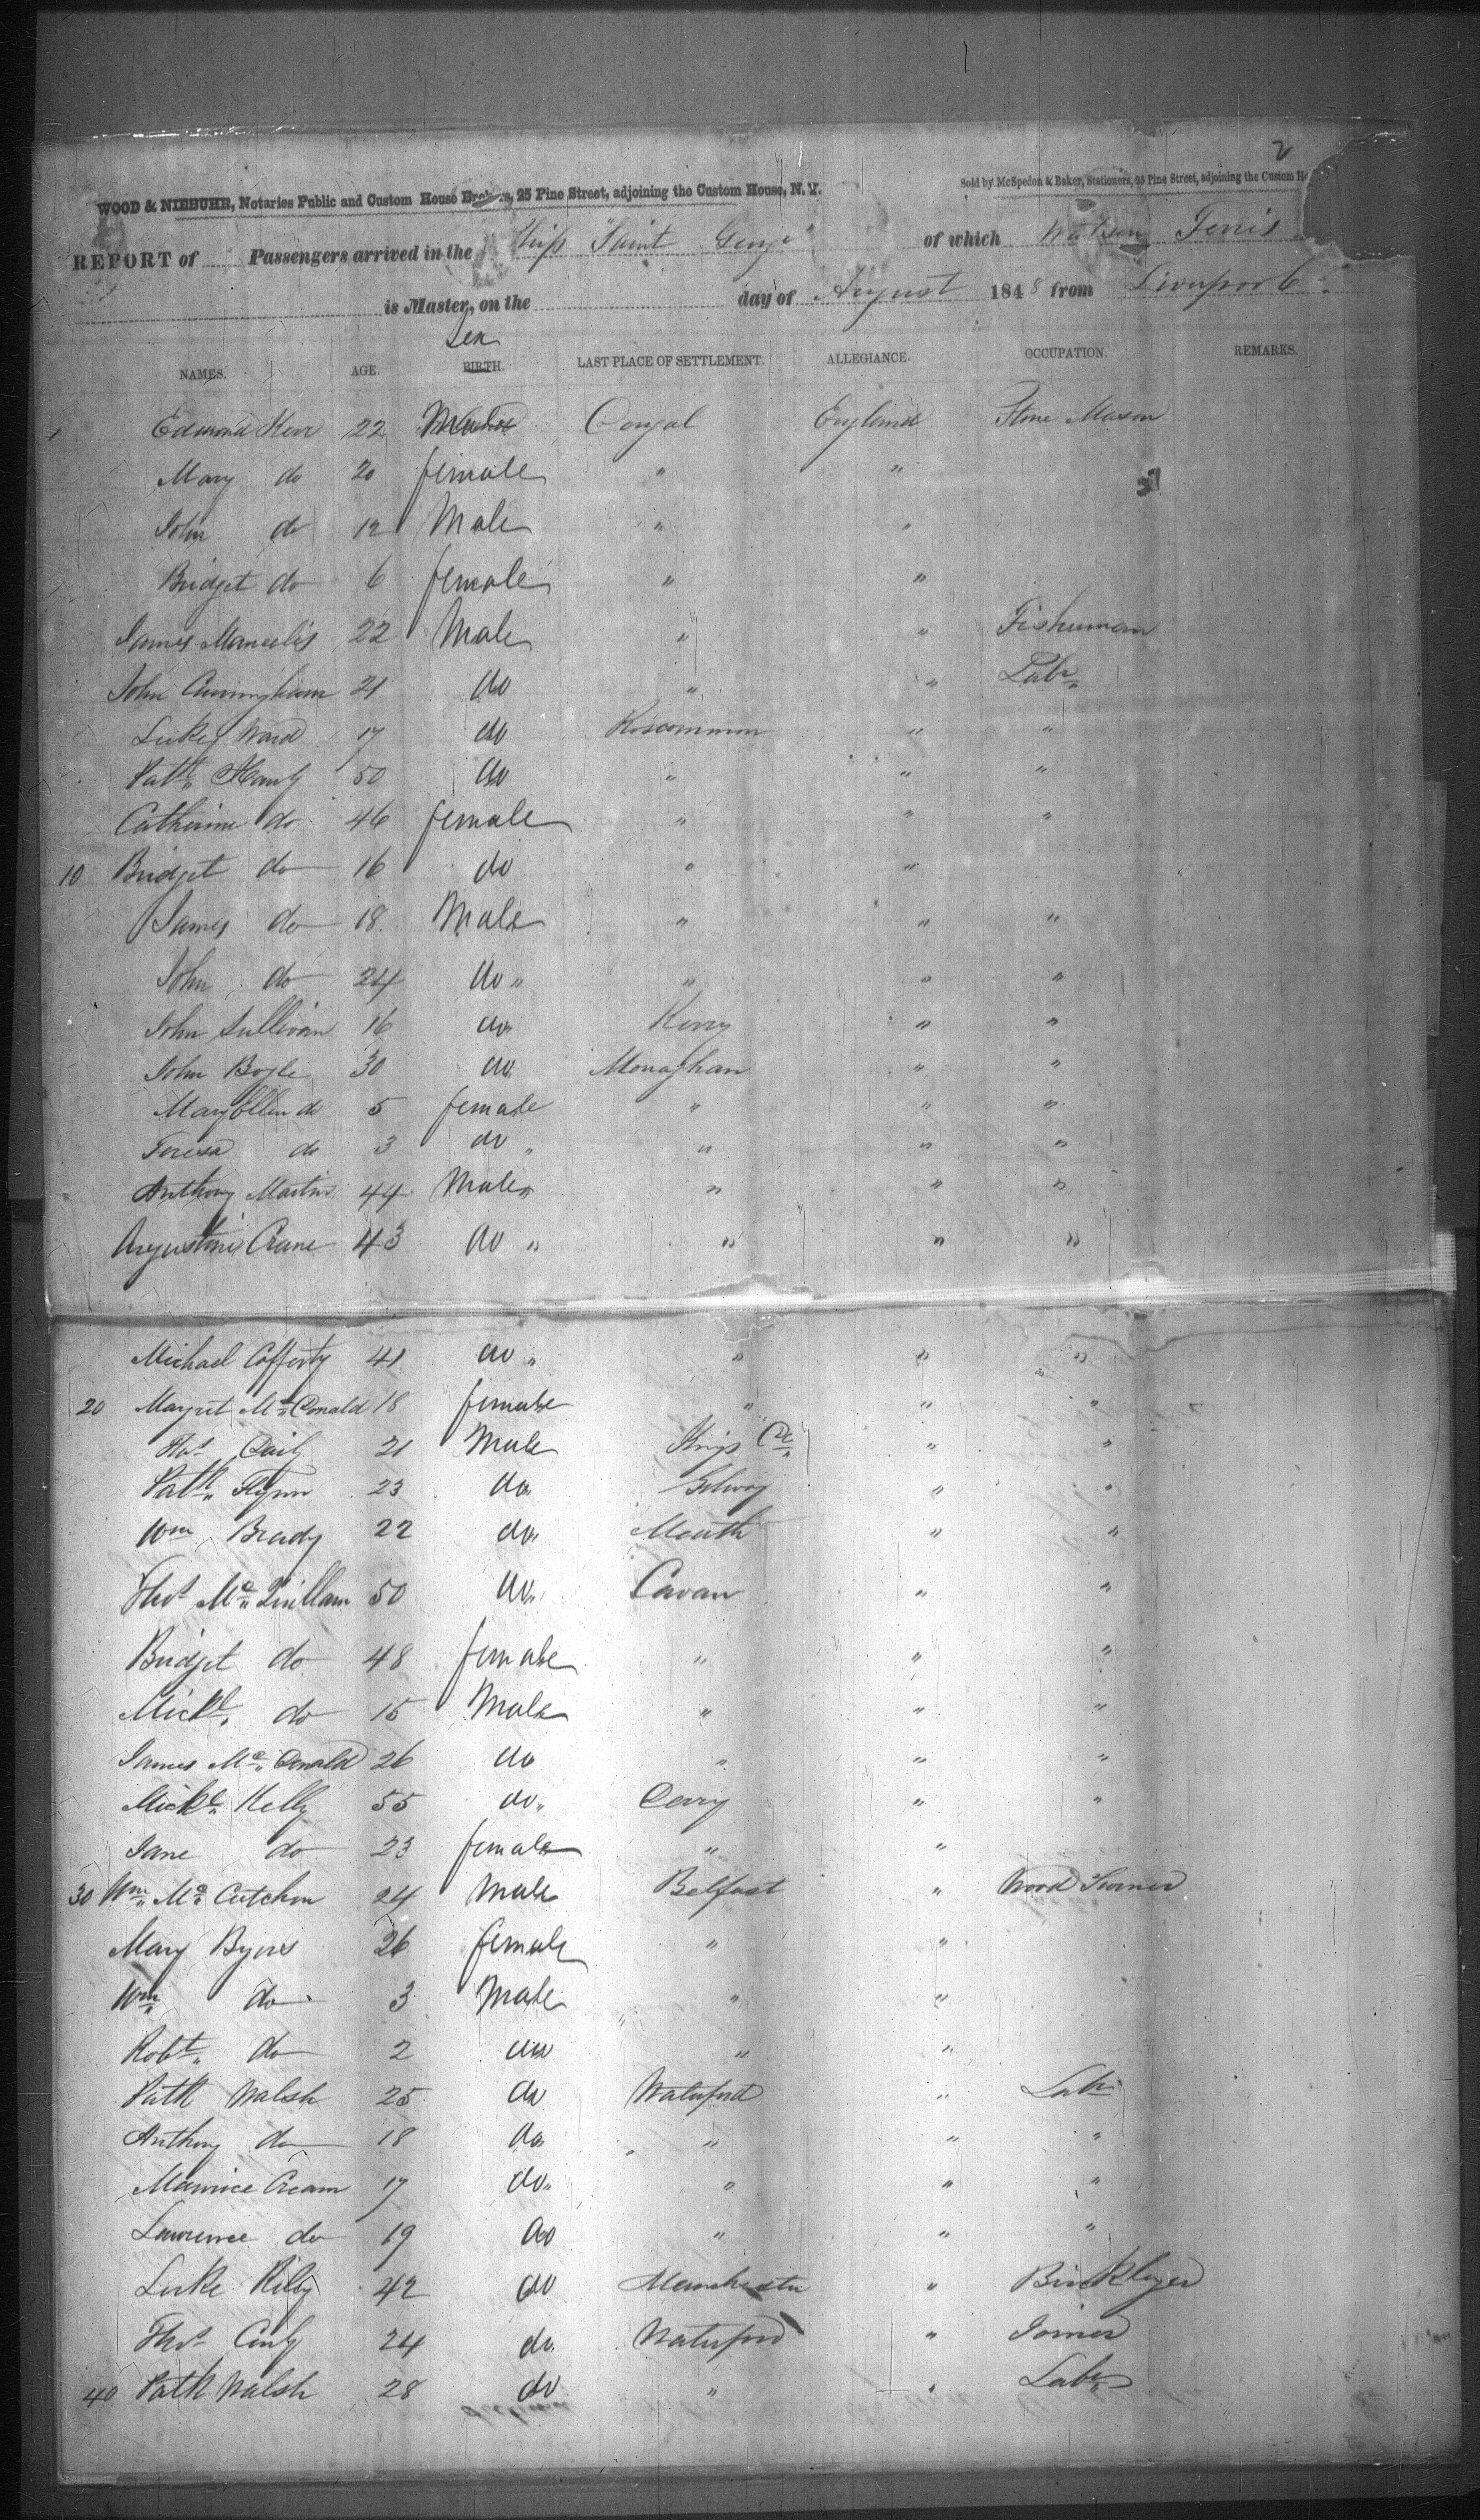 2
WOOD & NIEBUHR, Notaries Public and Custom House Brokers, 25 Pine Street, adjoining the Custom House, N. Y.
Sold by McSpedon & Baker, Stationers, 25 Pine Street, adjoining the Custom Ho
REPORT of Passengers arrived in the Ship Saint George of which Watson Ferris
is Master, on the day of August 1848 from Liverpool
Sex
NAMES. AGE. BIRTH. LAST PLACE OF SETTLEMENT. ALLEGIANCE. OCCUPATION. REMARKS.
Edmond Kerr 22 England Stone Mason
Mary do 20 female " "
John do 12 Male " "
Bridget do 6 female " "
James 22 Male " " Fishuman
John Cunningham 21 do " " Labr
Luke Ward 17 do Roscommon " "
Patk Hanly 50 do " " "
Catherine do 46 female " " "
10 Bridget do 16 do " "
James do 18 Male " " "
John do 24 do " " " "
John Sullivan 16 do Kerry " "
John Bogle 30 do Monaghan " "
Mary Ellen do 5 female " " "
Teresa do 3 do " " " "
Anthony Martin 44 Male " " " "
Augustine Crane 43 do " " " "
Michael Cafferty 41 do " " " "
20 Margret Mc Donald 18 female " " "
Thos Daily 21 Male Kings Co " "
Patk Flynn 23 do Galway " "
Wm Brady 22 do Meath " "
Thos Mc Quillam 50 do Cavan " "
Bridget do 48 female " " "
Michl do 15 Male " " "
James Mc Donald 26 do " " "
Michl Kelly 55 do Derry " "
Jane do 23 female " "
30 Wm Mc Cutchen 24 Male Belfast " Wood Turner
Mary Byers 26 female " "
Wm do 3 Male " "
Robt do 2 do " "
Patk Walsh 25 do Waterford " Labr
Anthony do 18 do " " "
Maurice Cream 17 do " " "
Lawrence do 19 do " " "
Luke Rily 42 do Manchester " Bricklayer
Thos 24 do Waterford " Joiner
40 Patk Walsh 28 do " " Labr